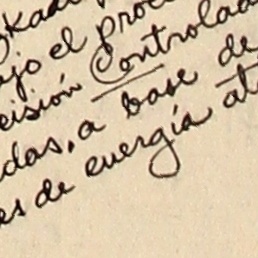 bajo el proce
cisión Controlada
das, a base de
es de energía at